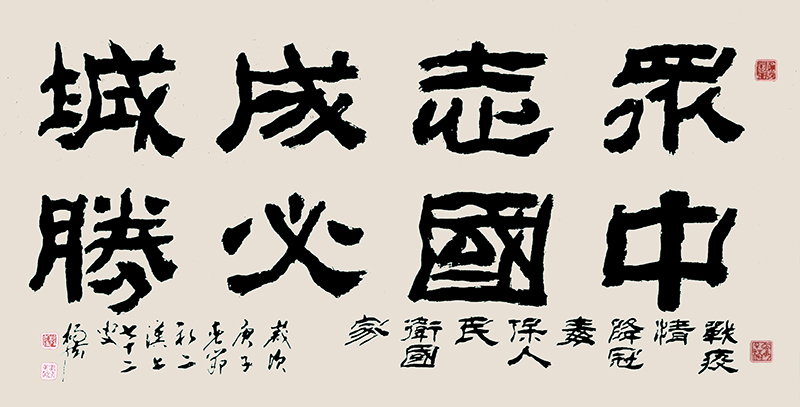 眾志成城
中國必勝
戰疫
情
降冠
毒
保人
民
衛國
家
歲次
庚子
春節
初二
漢上
七十二
叟